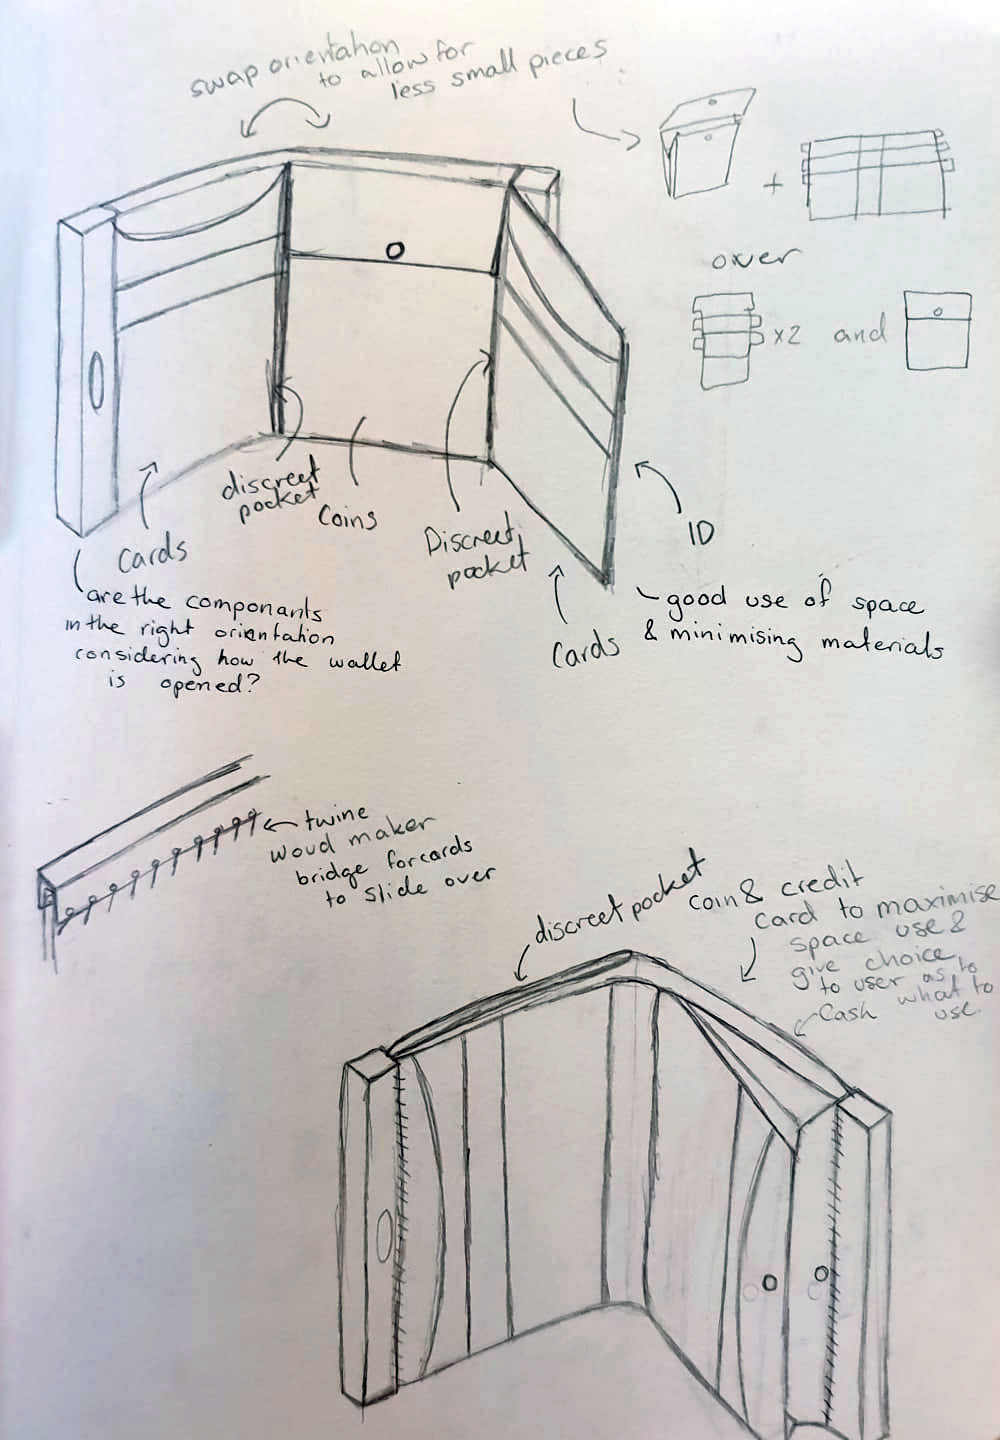 swap orientation
to allow for
less small pieces
+
over
x2 and
discreet
pocket
Coins
Discreet
pocket
ID
Cards
are the componants
in the right orientation
considering how the wallet
is opened?
Cards
good use of space
& minimising materials
twine
woud maker
bridge for cards
to slide over
discreet pocket
coin & credit
card to maximise
space use &
give choice
to user as to
what to
use.
Cash